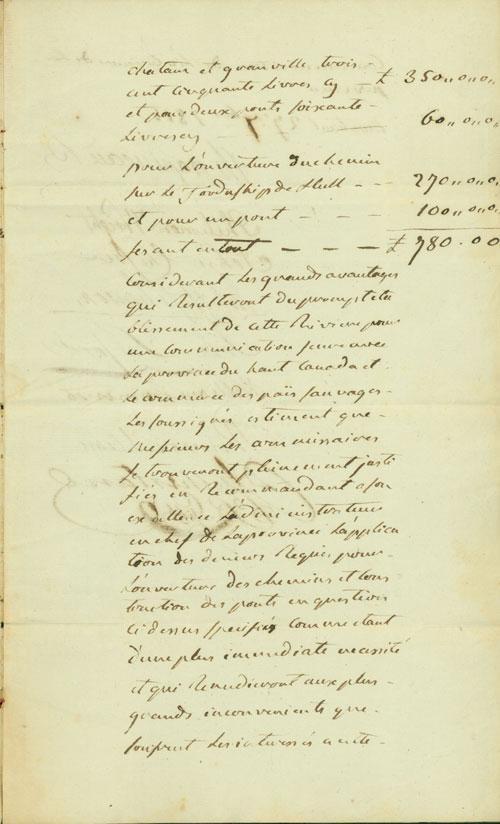 chatam et granville trois
cent cinquante Livres Cy — £ 350,,0,,0,,
et pour deux ponts soixante —
Livres Cy 60,,0,,0,
pour L'ouverture du chemin
sur Le Township de Hull — — 270,,0,,0,
et pour un pont — — — 100,,0,,0,
fesant en tout — — — £ 780.00
Considerant Les grands avantages
qui Resulteront du prompt eta
blissement de cette Riviere pour
une Communication
La province du haut Canada et
Le commerce des païs sauvages.
Les soussignés estiment que —
Messieurs Les commissaires
se trouveront pleinement justi
fiés en Recommandant a son
excellence L'administrateur
en chef de La province L'applica
tion des deniers Requis pour —
L'ouverture des chemins et Cons
truction des ponts en question
Ci dessus specifiés Comme etant
d'une plus immediate necessité
et qui Remedieront aux plus —
grands inconvenients que —
souffrent Les interessés a cette —